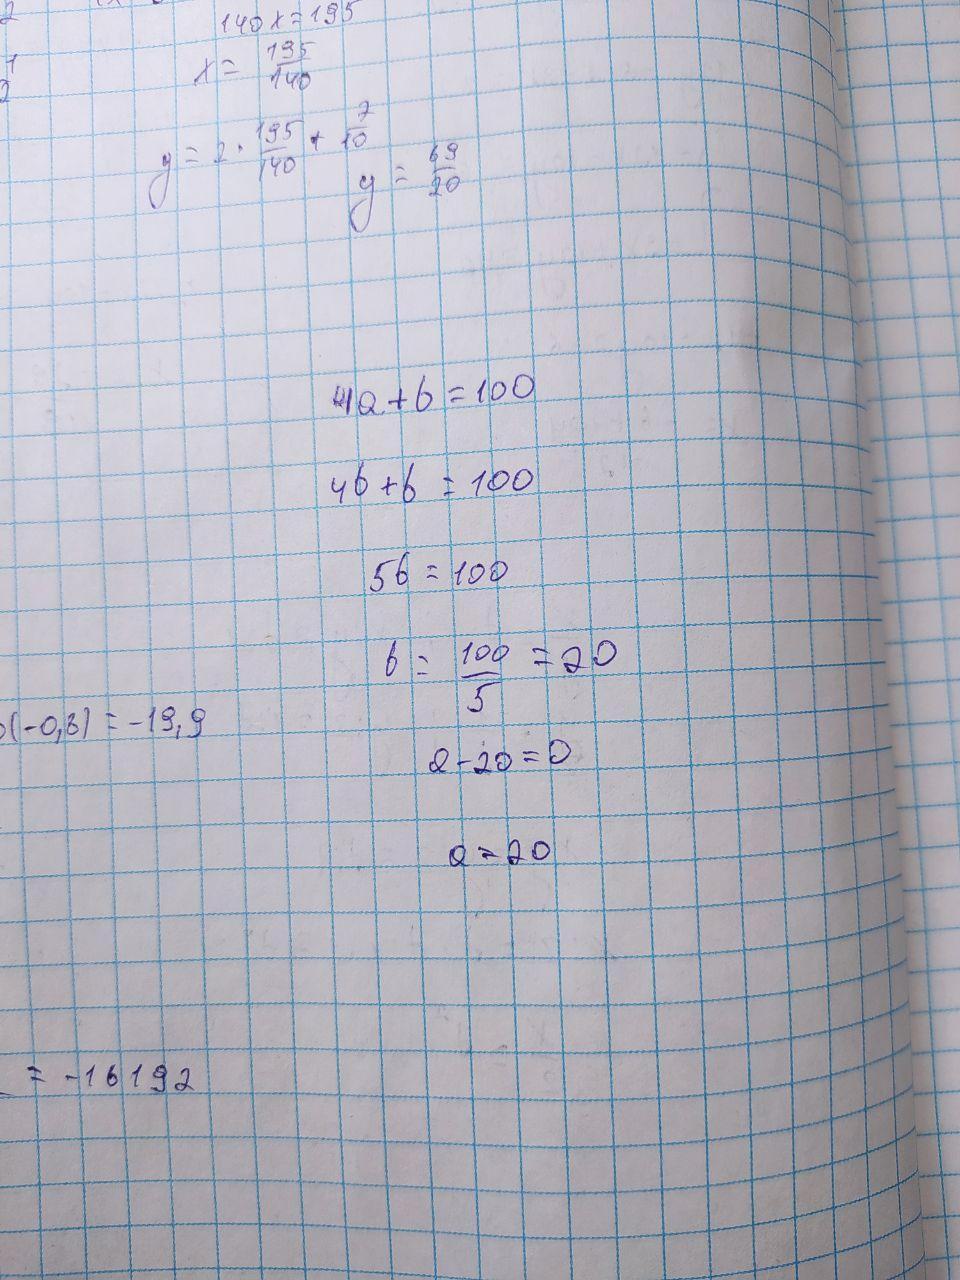 140x=195
x = 195/140
y = 2 · 195/140 + 7/10
y = 69/20
4a+b=100
4b+b=100
5b=100
b = 100/5 =20
(-0,3) = -19,9
a-20=0
a=20
= -16192